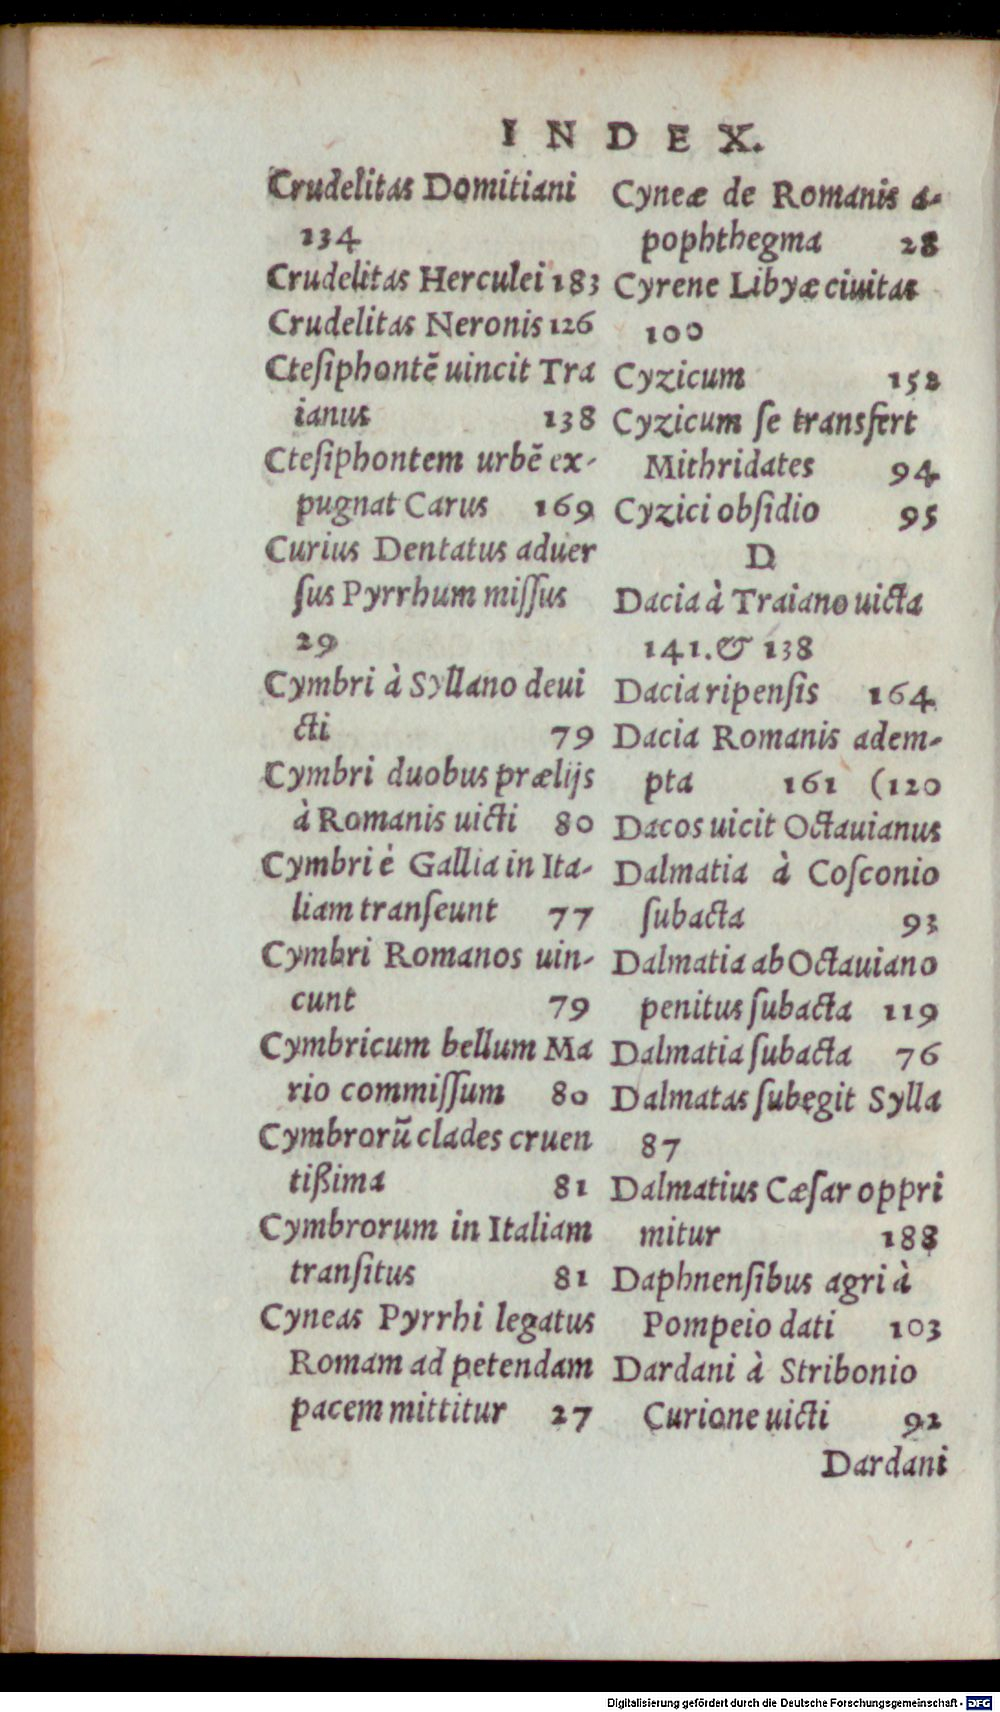 INDEX.
Crudelitas Domitiani
134
Crudelitas Herculei 183
Crudelitas Neronis 126
Ctesiphontẽ uincit Tra
ianus 138
Ctesiphontem urbẽ ex-
pugnat Carus 169
Curius Dentatus aduer
sus Pyrrhum missus
29
Cymbri à Syllano deui
cti 79
Cymbri duobus prælijs
à Romanis uicti 80
Cymbri è Gallia in Ita-
liam transeunt 77
Cymbri Romanos uin-
cunt 79
Cymbricum bellum Ma
rio commissum 80
Cymbrorũ clades cruen
tißima 81
Cymbrorum in Italiam
transitus 81
Cyneas Pyrrhi legatus
Romam ad petendam
pacem mittitur 27
Cyneæ de Romanis a-
pophthegma 28
Cyrene Libyæ ciuitas
100
Cyzicum 152
Cyzicum se transfert
Mithridates 94
Cyzici obsidio 95
D
Dacia à Traiano uicta
141. & 138
Dacia ripensis 164
Dacia Romanis adem-
pta 161 (120
Dacos uicit Octauianus
Dalmatia à Cosconio
subacta 93
Dalmatia ab Octauiano
penitus subacta 119
Dalmatia subacta 76
Dalmatas subegit Sylla
87
Dalmatius Cæsar oppri
mitur 188
Daphnensibus agri à
Pompeio dati 103
Dardani à Stribonio
Curione uicti 92
Dardani
Digitalisierung gefördert durch die Deutsche Forschungsgemeinschaft - DFG